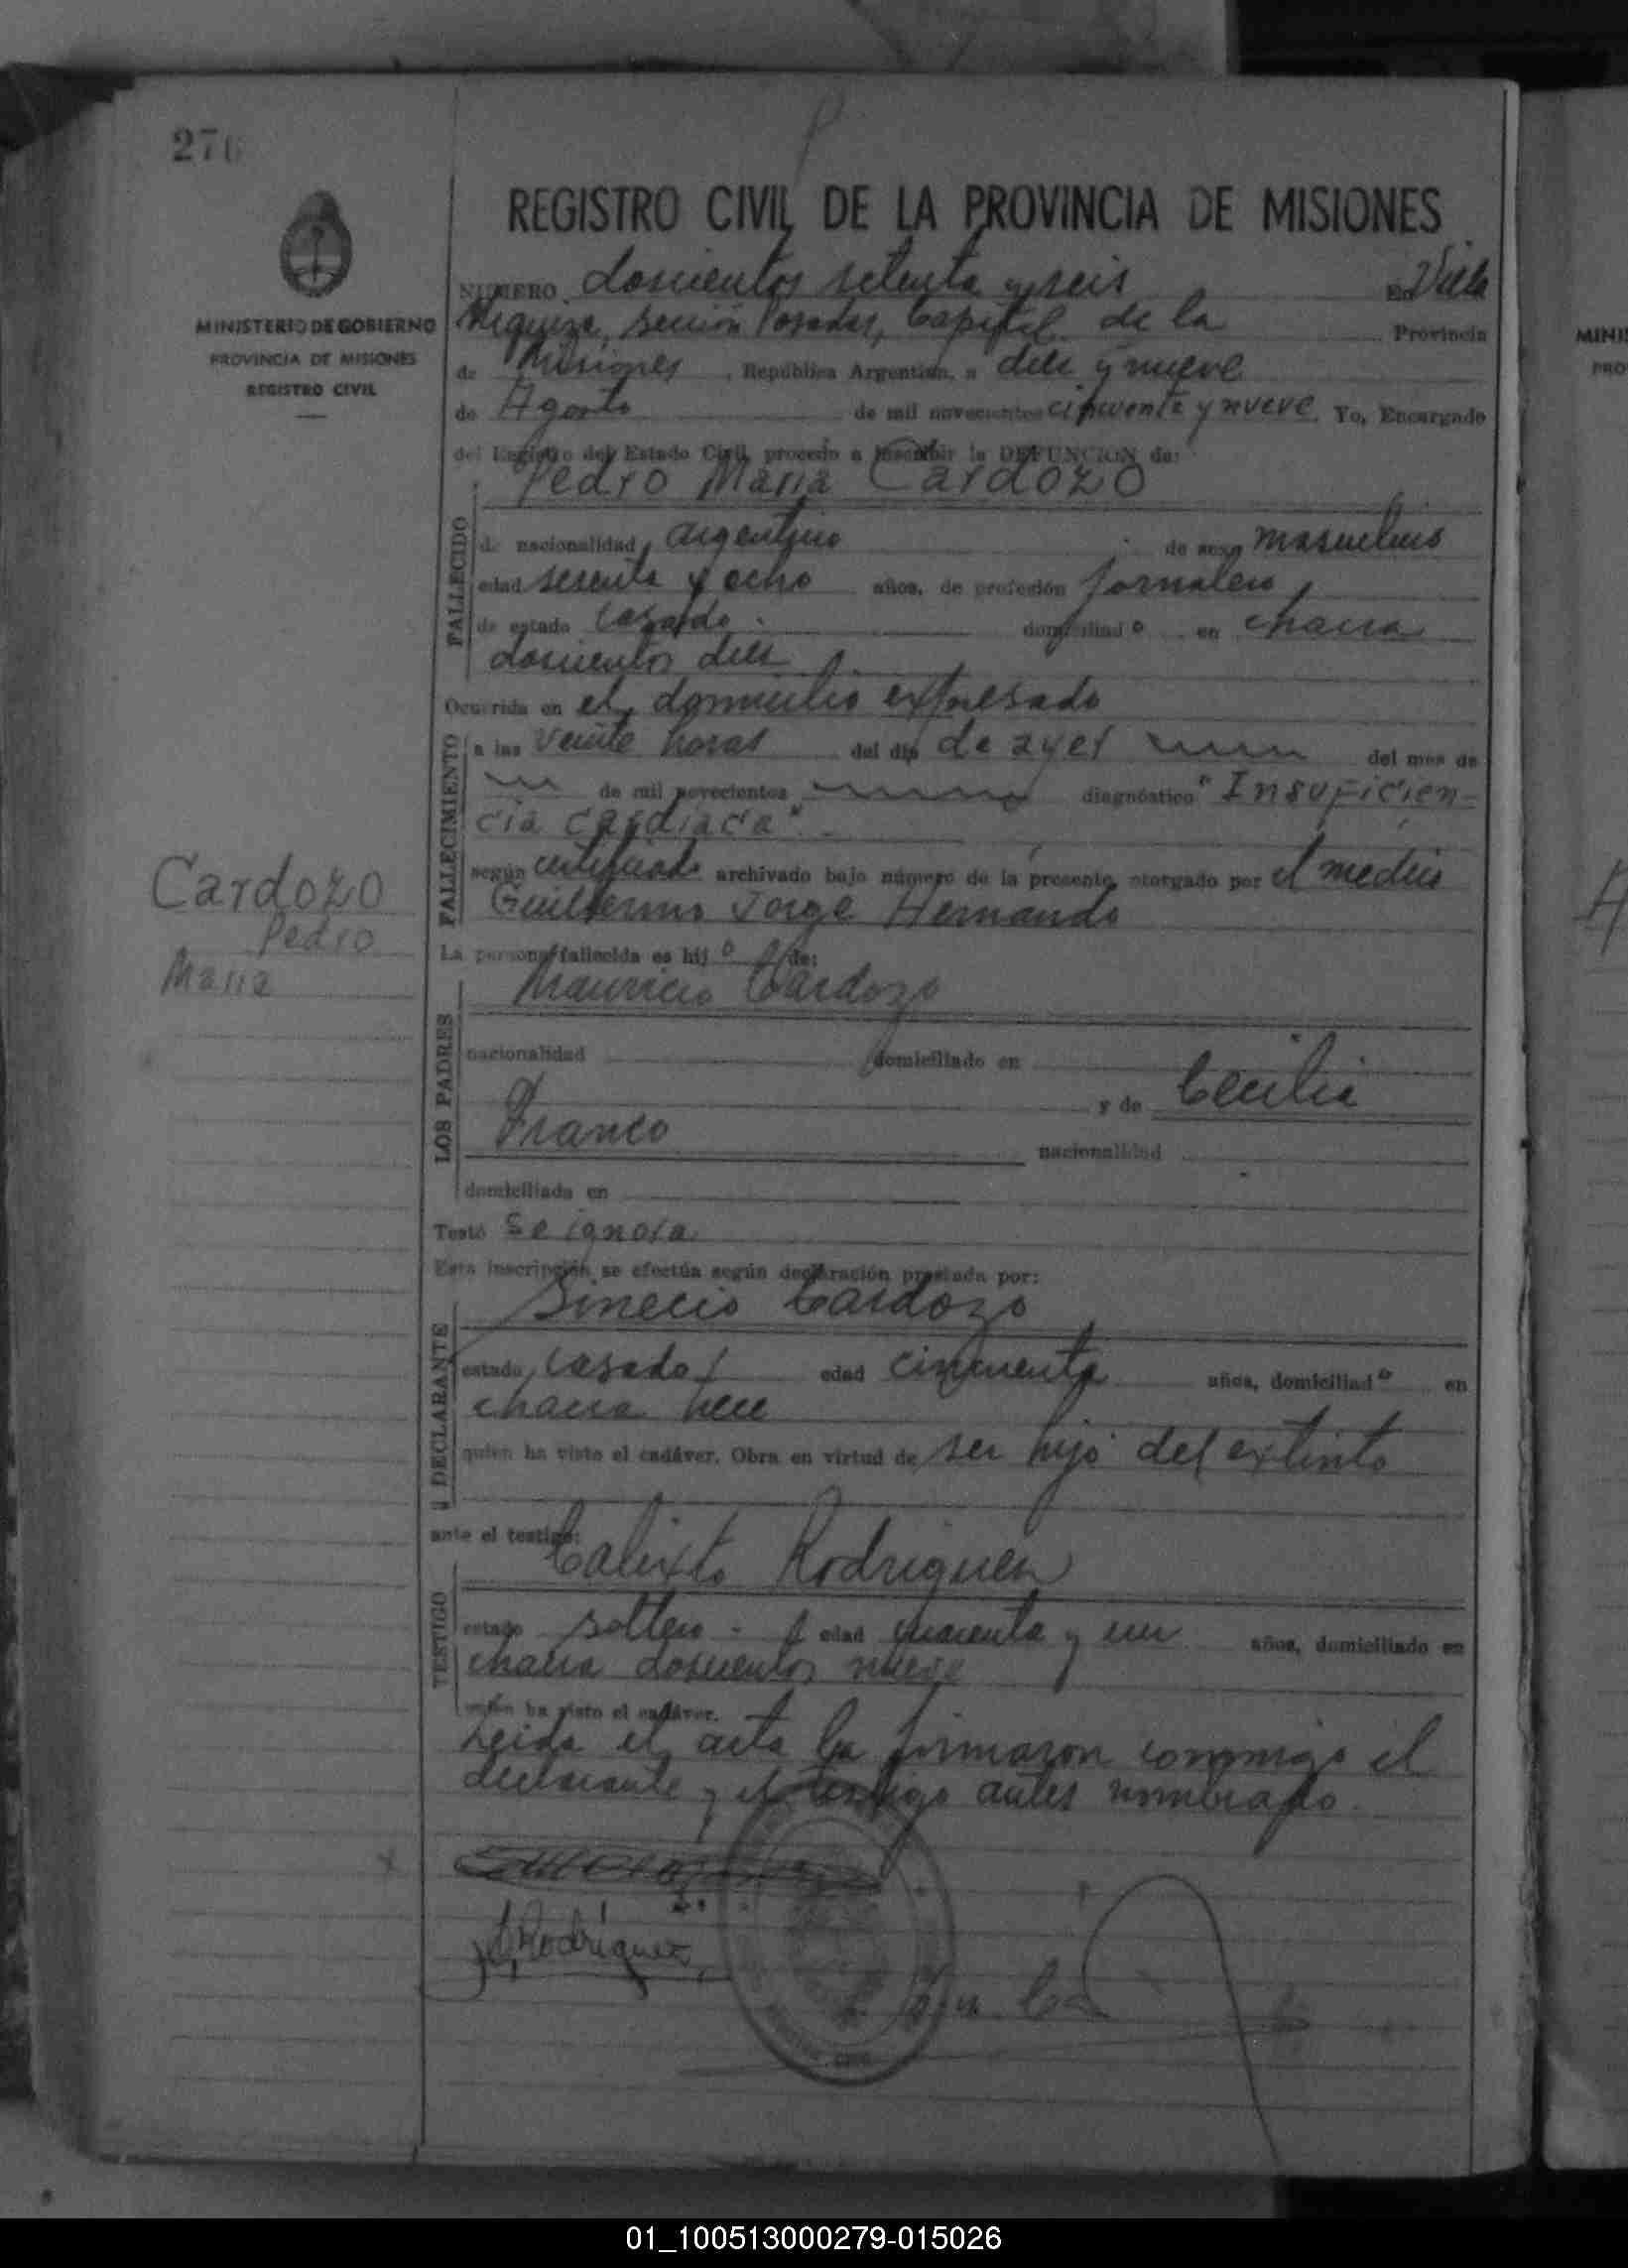 276
REGISTRO CIVIL DE LA PROVINCIA DE MISIONES
MINISTERIO DE GOBIERNO
PROVINCIA DE MISIONES
REGISTRO CIVIL
NUMERO doscientos setenta y seis En Villa
Urquiza, sección Posadas, Capital de la Provincia
de Misiones, República Argentina, a diez y nueve
de Agosto de mil novecientos cincuenta y nueve Yo, Encargado
del Registro del Estado Civil, procedo a inscribir la DEFUNCION de:
Pedro Maria Cardozo
FALLECIDO
de nacionalidad argentino de sexo masculino
edad sesenta y ocho años, de profesión jornalero
de estado casado. domiciliado en chacra
doscientos diez
Ocurrida en el domicilio expresado
FALLECIMIENTO
a las veinte horas del día de ayer del mes de
de mil novecientos diagnóstico "Insuficien-
cia cardiaca".
según certificado archivado bajo número de la presente, otorgado por el medico
Guillermo Jorge Hernando
Cardozo
Pedro
Maria
La persona fallecida es hijo de:
Mauricio Cardozo
LOS PADRES
nacionalidad domiciliado en
y de Cecilia
Franco nacionalidad
domiciliada en
Testó Se ignora
Esta inscripción se efectúa según declaración prestada por:
Sinecio Cardozo
DECLARANTE
estado casado edad cincuenta años, domiciliado en
chacra
quien ha visto el cadáver. Obra en virtud de ser hijo del extinto
ante el testigo:
Calixto Rodriguez
TESTIGO
estado soltero. edad cuarenta y un años, domiciliado en
chacra doscientos nueve
quien ha visto el cadáver.
Leida el acta la firmaron conmigo el
declarante y el testigo antes nombrado.
Rodriguez
MINIS
PRO
01_100513000279-015026